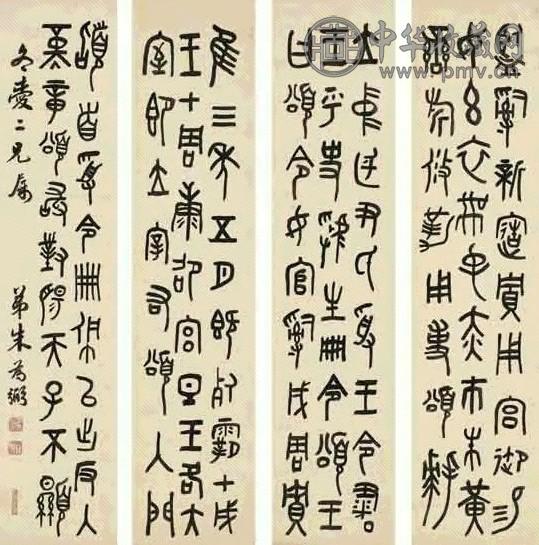 中华收藏网
www.pmv.cn
監嗣新造賈用宮御易
女玄衣黹屯赤巿朱黃
䜌旂攸勒用事頌拜
立中廷尹氏受王令書
王乎史虢生冊令頌王
曰頌令女官嗣成周賈
隹三年五月既死霸甲戌
王才周康卲宮旦王各大
室即立宰右頌入門
𩒨首受令冊佩㠯出反入
堇章頌敢對揚天子不顯
愛二兄屬
弟朱為弼